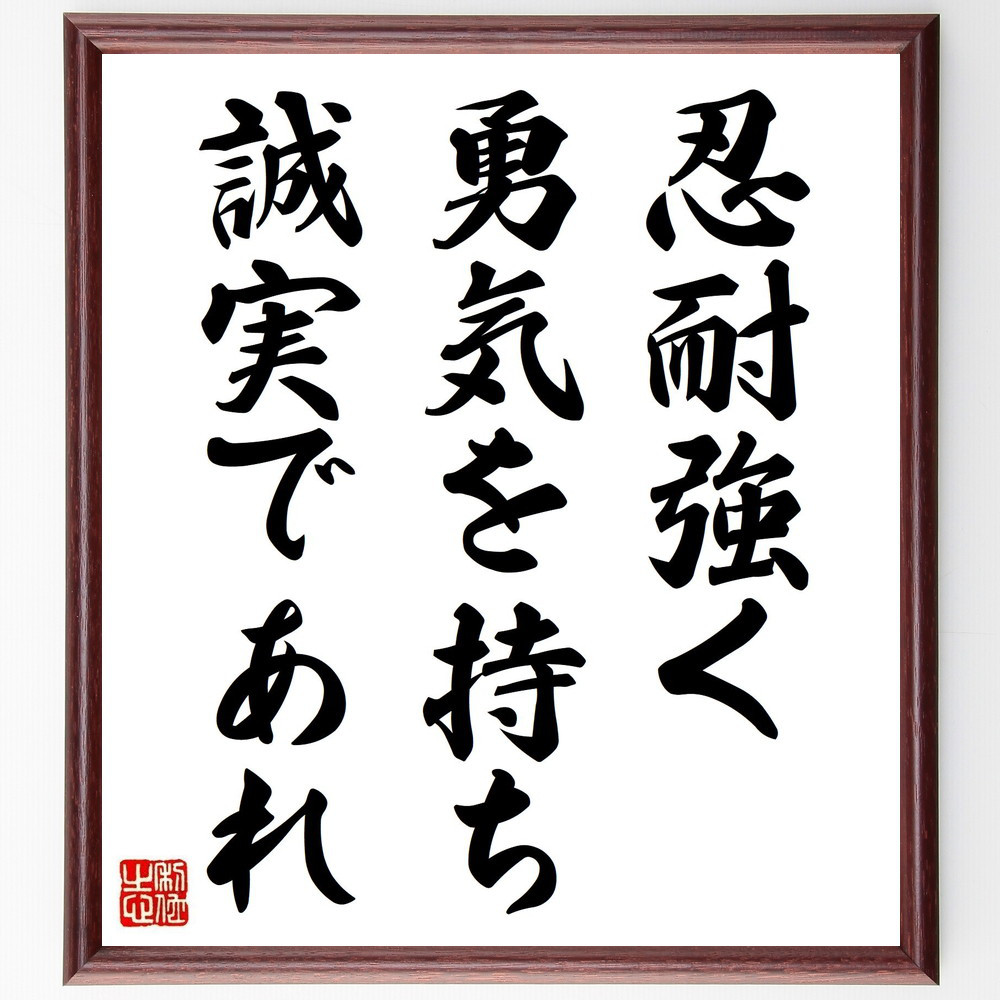 忍耐強く
勇気を持ち
誠実であれ